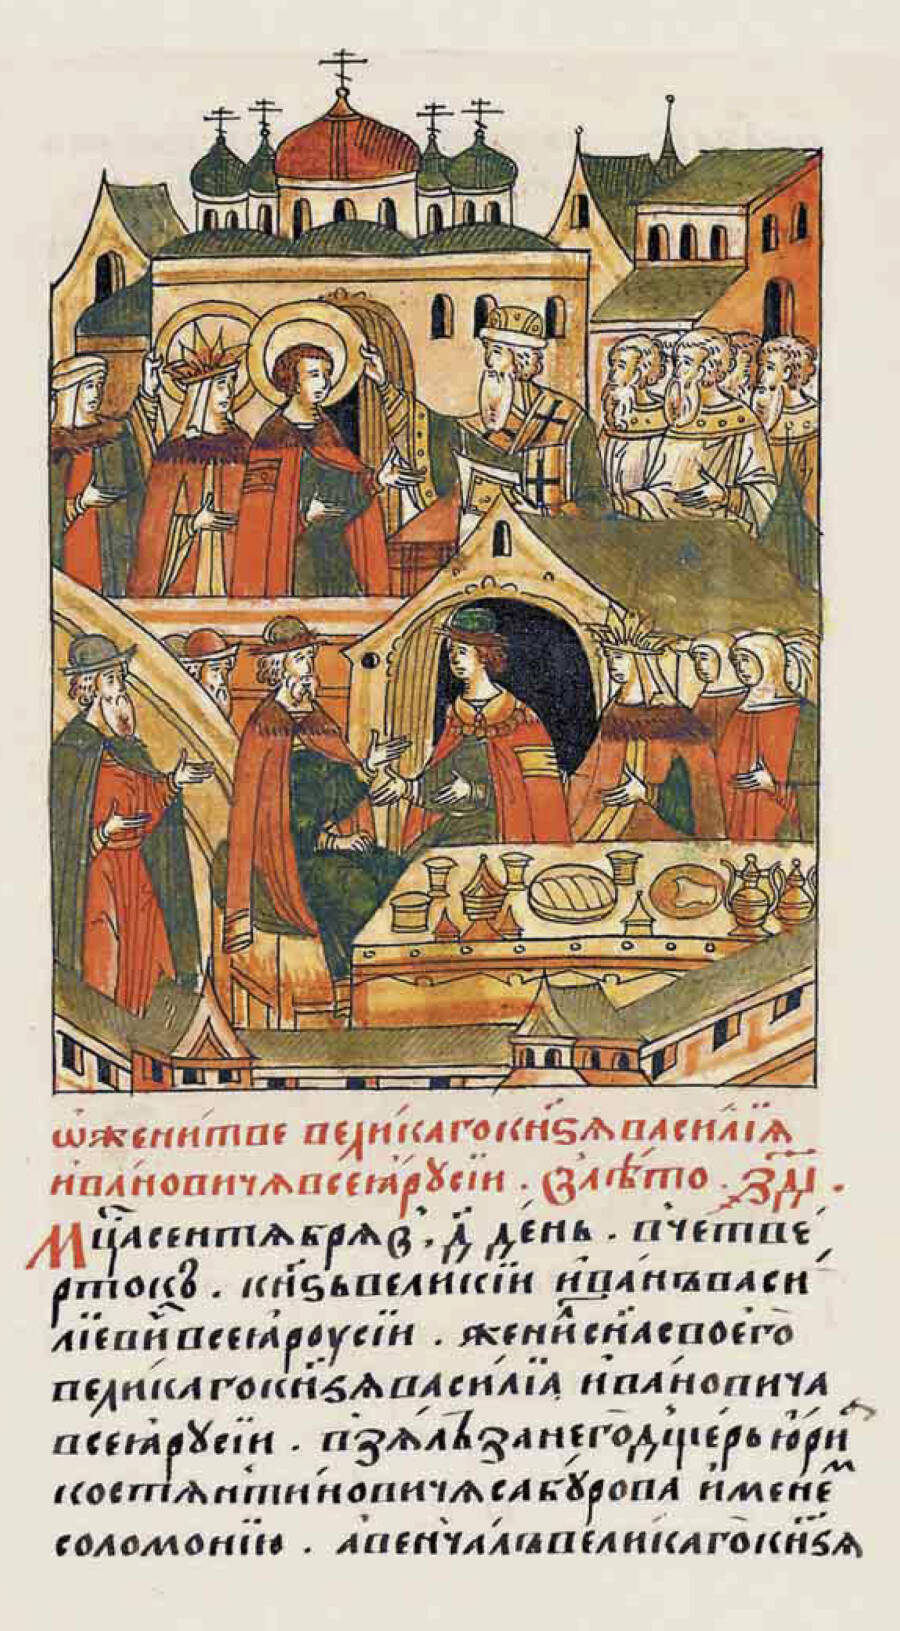 ѡженитве великагокн҃ѕѧвасилїѧ
ивановичѧвсеꙗрꙋсїи . в̾лѣто . ҂зд҃ı .
Мц҃асентѧбрѧв . д҃ день . вчетве
ртокъ . кн҃ѕьвеликїи иванъваси
лїеви̾всеꙗроусїи . жени̾сн҃асвоего
великагокн҃ѕѧвасилїѧ ивановича
всеꙗрꙋсїи . взѧлъзанегодщерьюри
костѧнтиновичѧсабꙋрова имене̾
соломонїю . авенчалъвеликагокн҃ѕѧ